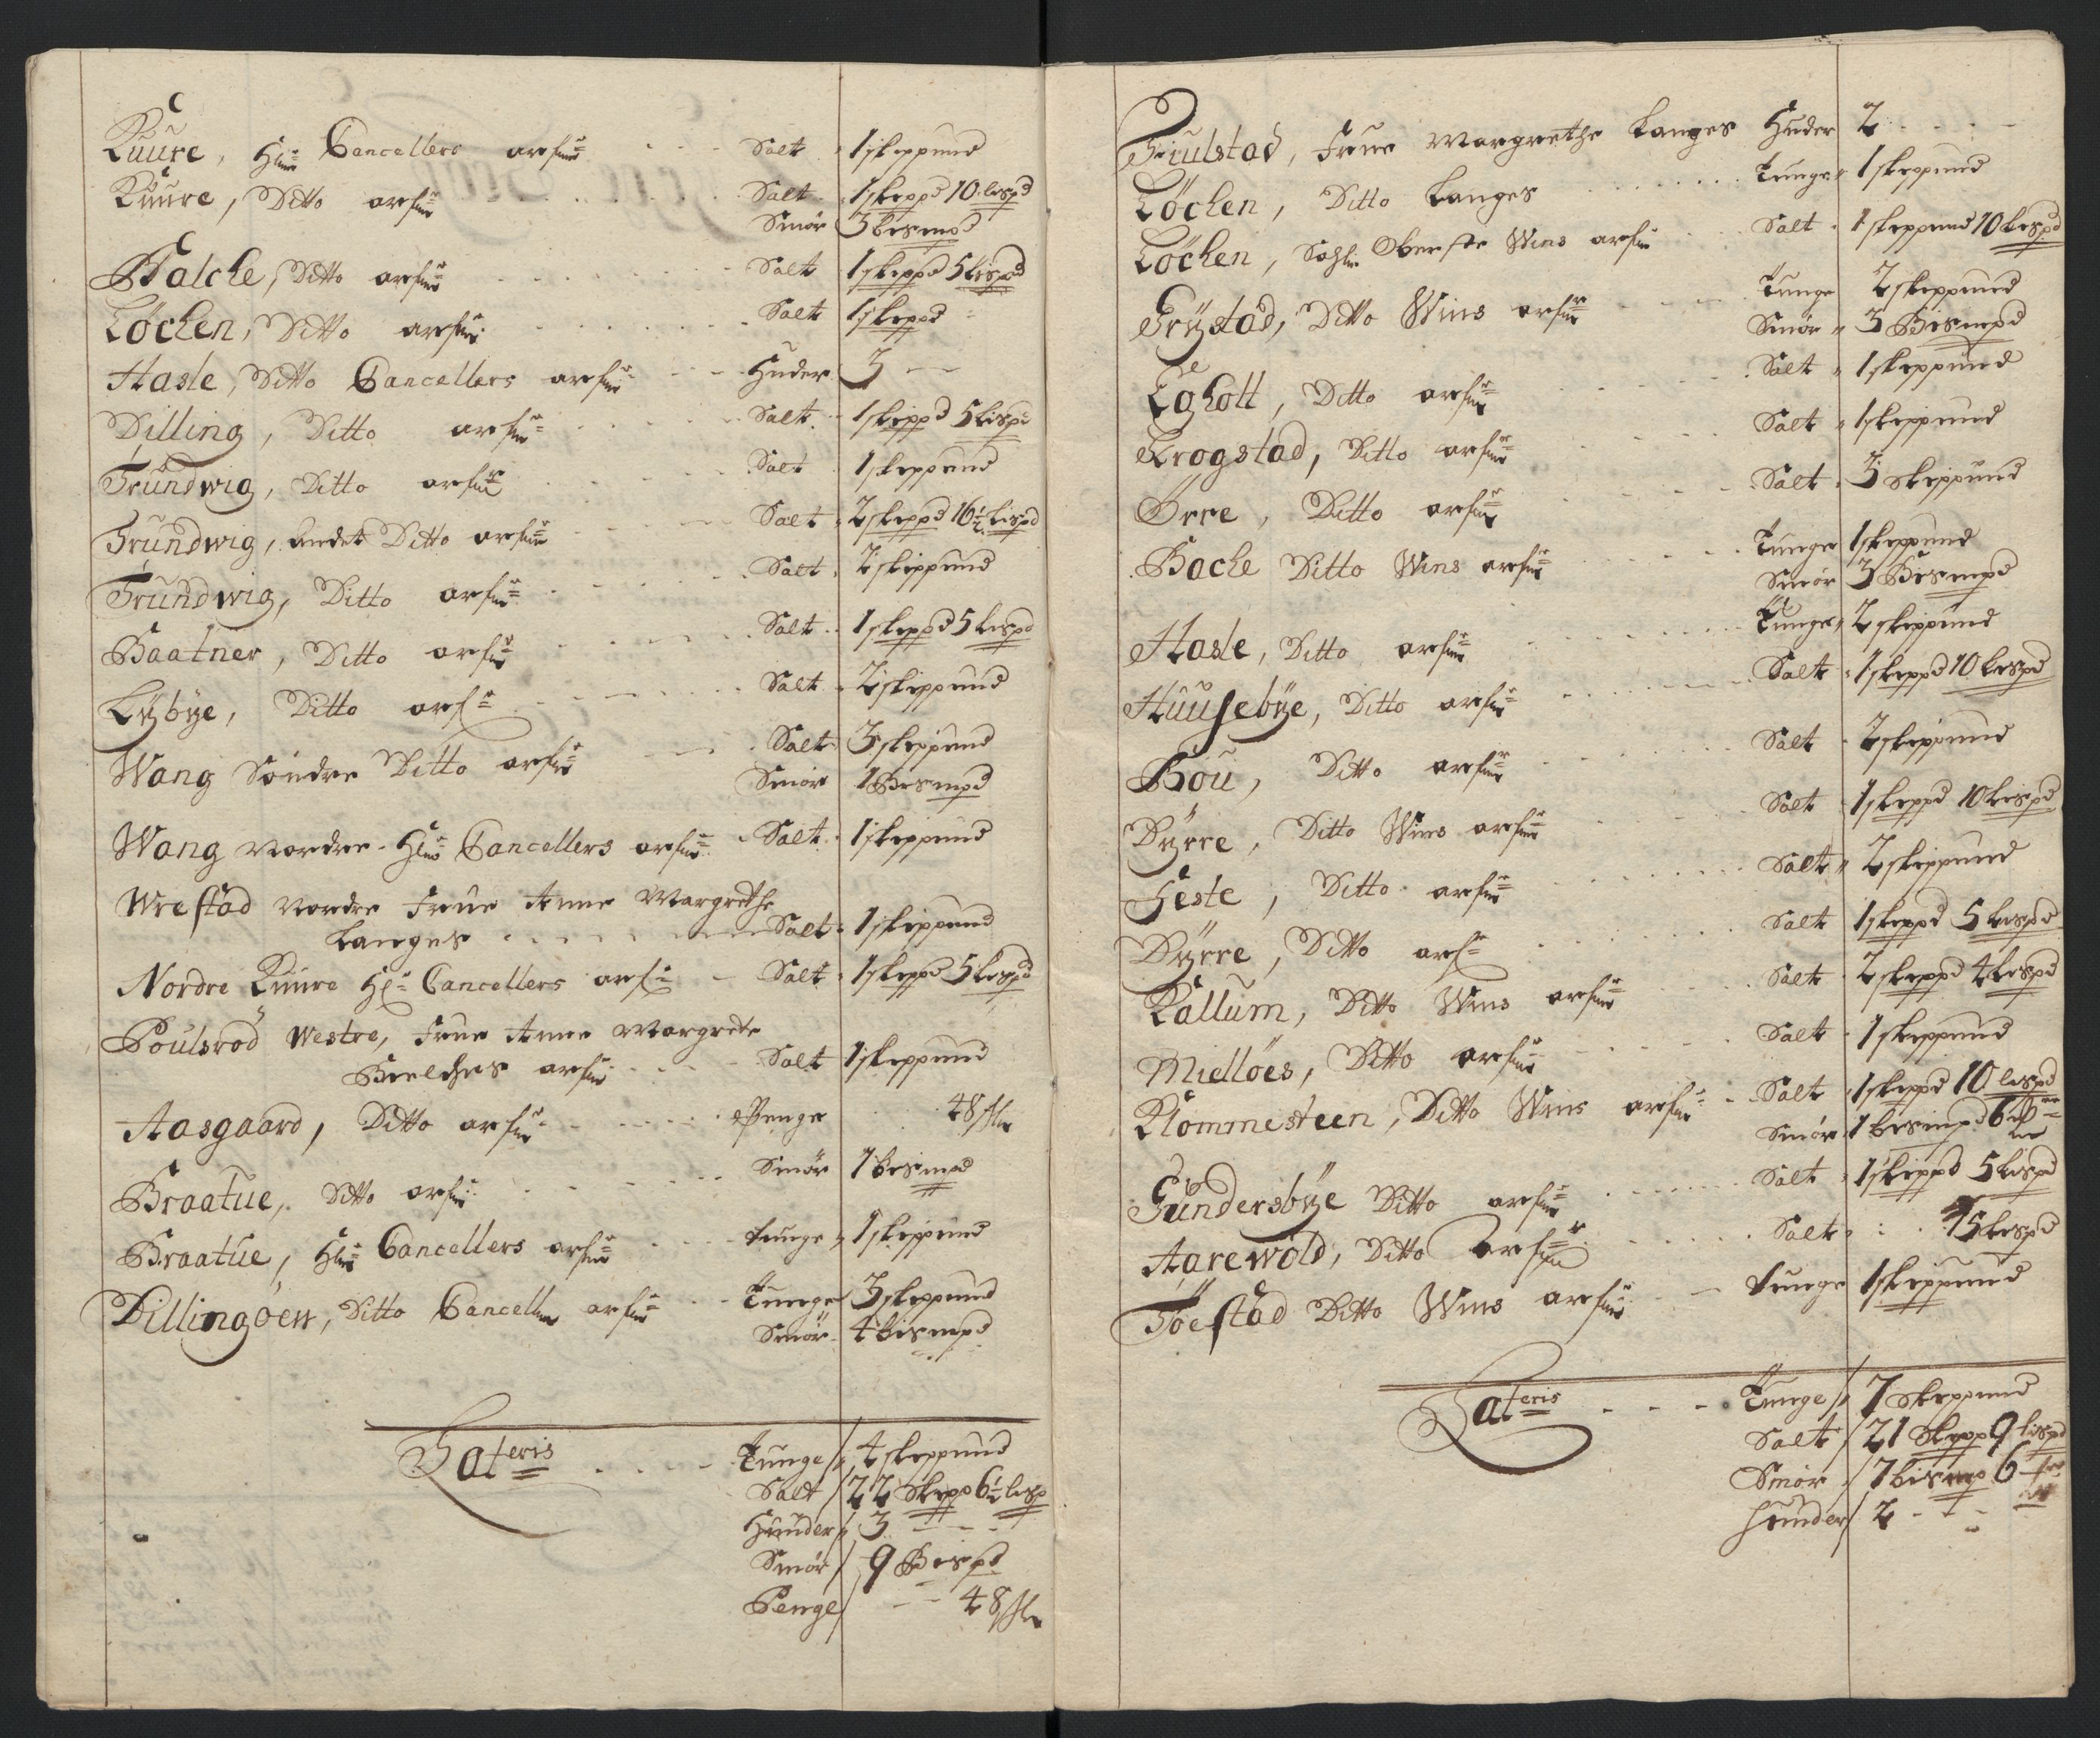 Kuure, Hl: Cancellers arfinr Salt 1 skippund
Kuure, Ditto arfinr Salt 1 skippd 10 lispd
Smör 3 bismpd
Balche, Ditto arfinr Salt 1 skippd 5 lispd
Löchen, Ditto arfinr Salt 1 skippd
Hasle, Ditto Cancellers arfinr Huder 3
Dilling, Ditto arfinr Salt 1 skippd 5 lispd
Trundwig, Ditto arfinr Salt 1 skippund
Trundwig, andet Ditto arfinr Salt 2 skippd 16½ lispd
Trundwig, Ditto arfinr Salt 2 skippund
Baatner, Ditto arfinr Salt 1 skippd 5 lispd
Lybye, Ditto arf: Salt 2 skippund
Wang Söndre Ditto arfinr Salt 3 skippund
Smör 1 Bismpd
Wang Nordre Hl: Cancellers arfinr Salt 1 skippund
Wrestad Nordre Frue Anne Margrethe
Langes Salt 1 skippund
Nordre Kuure Hl: Cancellers arf: Salt 1 skippd 5 lispd
Poulsröd Westre, Frue Anne Margrete
Bielches arfinr Salt 1 skippund
Aasgaard, Ditto arfinr Penge 48 sk
Braatue, Ditto arfinr Smör 1 bismpd
Braatue, Hl: Cancellers arfinr tunge 1 skippund
Dillingöen, Ditto Cancellers arfinr Tunge 3 skippund
Smör 4 bismpd
Lateris Tunge 4 skippund
Salt 22 Skipp 6½ lisp
Huuder 3
Smör 9 Bispd
Penge 48 sk
Frulstad, Frue Margrethe Langes Huder 2
Löchen, Ditto Langes Tunge 1 skippund
Löchen, Sahl: Oberste Wins arfinr Salt 1 skippund 10 lispd
Frystad, Ditto Wins arfinr Tunge 2 skippund
Smör 3 Bismpd
Egholt, Ditto arfinr Salt 1 skippund
Krogstad, Ditto arfinr Salt 1 skippund
Örre, Ditto arfinr Salt 3 skippund
Bache Ditto Wins arfinr Tunge 1 skippund
Smör 3 Bismpd
Hasle, Ditto arfinr Tunge 2 skippund
Huusebye, Ditto arfinr Salt 1 skippd 10 lispd
Bou, Ditto arfinr Salt 2 skippund
Dyrre, Ditto Wins arfinr Salt 1 skippd 10 lispd
Geste, Ditto arfinr Salt 2 skippund
Dyrre, Ditto arf: Salt 1 skippd 5 lispd
Kallum, Ditto Wins arfinr Salt 2 skippd 4 lispd
Miellöes, Ditto arfinr Salt 1 skippund
Klommesteen, Ditto Wins arfinr Salt 1 skippd 10 lispd
Smör 1 bismpd 6
Gundersbye Ditto arfinr Salt 1 skippd 5 lispd
Aarewold, Ditto arfinr Salt 15 lispd
Töestad Ditto Wins arfinr tunge 1 skippund
Lateris Tunge 7 Skippund
Salt 21 Skipp 9 lispd
Smör 7 bismp 6
huuder 2